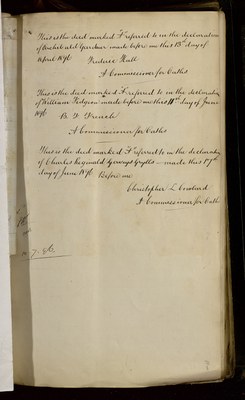 This is the deed marked F referred to in the declaration
of Archibald Gardner made before me this 13th day of
April 1896
Frederic Hall
A Commissioner for Oaths
This is the deed marked F referred to in the declaration
of William Pidgeon made before me this 11th day of June
1896
B. F. French
A Commissioner for Oaths
This is the deed marked F referred to in the declaration
of Charles Reginald Gervays Grylls made this 17th
day of June 1896 Before me
Christopher L. Coward
A Commissioner for Oaths